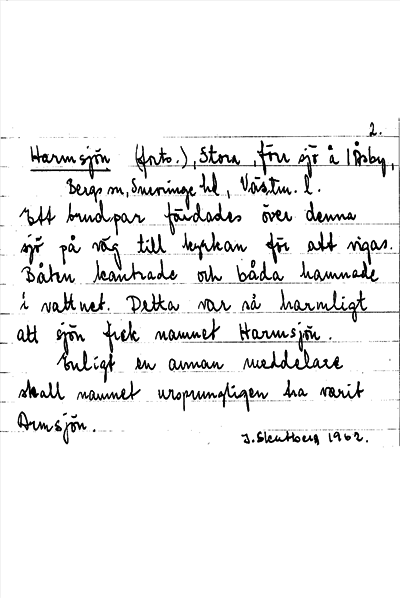 2.
Harmsjön (forts.), Stora, förr sjö å 1 Åsby,
Bergs sn, Snevringe hd, Västm. l.
Ett brudpar färdades över denna
sjö på väg till kyrkan för att vigas.
Båten kantrade och båda hamnade
i vattnet. Detta var så harmligt
att sjön fick namnet Harmsjön.
Enligt en annan meddelare
skall namnet ursprungligen ha varit
Armsjön.
J. Skutberg 1962.